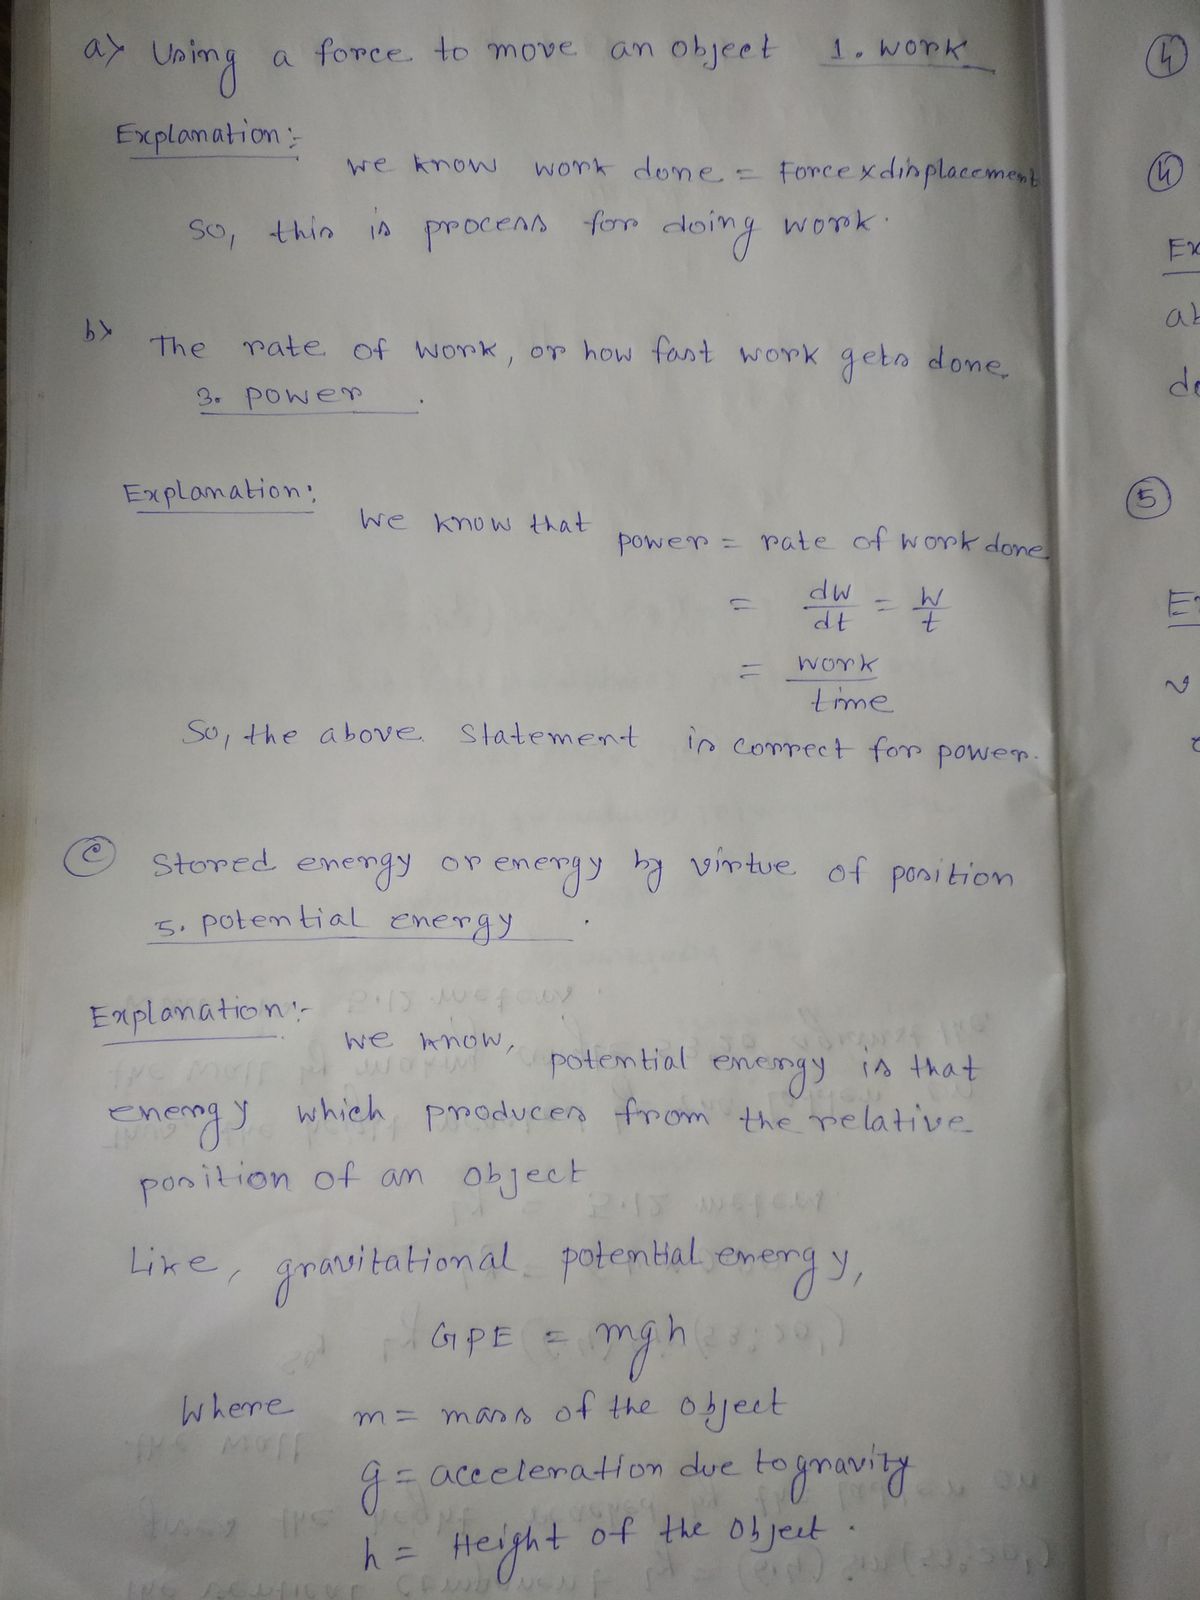 a) Using a force to move an object 1. work
Explanation :-
we know work done = Force x displacement
So, this is process for doing work.
b) The rate of work, or how fast work gets done
3. power .
Explanation:
We know that power = rate of work done
= dw/dt = W/t
= work/time
So, the above statement is correct for power.
c) Stored energy or energy by virtue of position
5. potential energy .
Explanation :-
we know, potential energy is that
energy which produces from the relative
position of an object
Like, gravitational potential energy,
GPE = mgh
Where m = mass of the object
g = acceleration due to gravity
h = Height of the object .
4
4
Ex
5